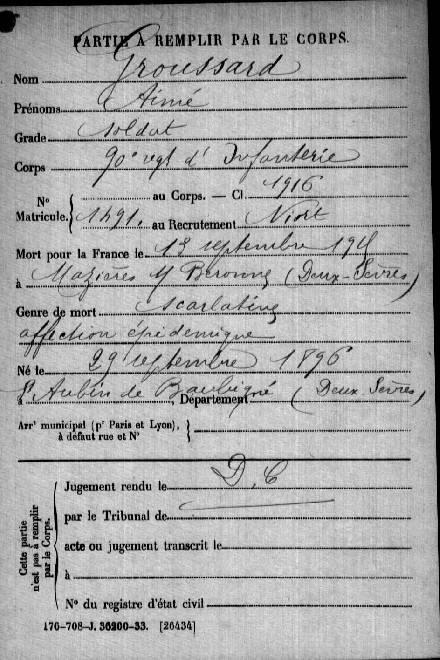 PARTIE À REMPLIR PAR LE CORPS.
Nom Groussard
Prénoms Aimé
Grade soldat
Corps 90e regt d' Infanterie
N° Matricule. { au Corps. — Cl 1916
1491. au Recrutement Niort
Mort pour la France le 18 septembre
à Mazières s/ Beronne (Deux-Sèvres)
Genre de mort scarlatine
affection épidémique
Né le 29 septembre 1896
à St Aubin de Baubigné, Département (Deux Sèvres)
Arrt municipal (pr Paris et Lyon), à défaut rue et N° }
Cette partie n'est pas à remplir par le Corps.
D. C
Jugement rendu le
par le Tribunal de
acte ou jugement transcrit le
à
N° du registre d'état civil
170-708-J. 36200-33. [26434]